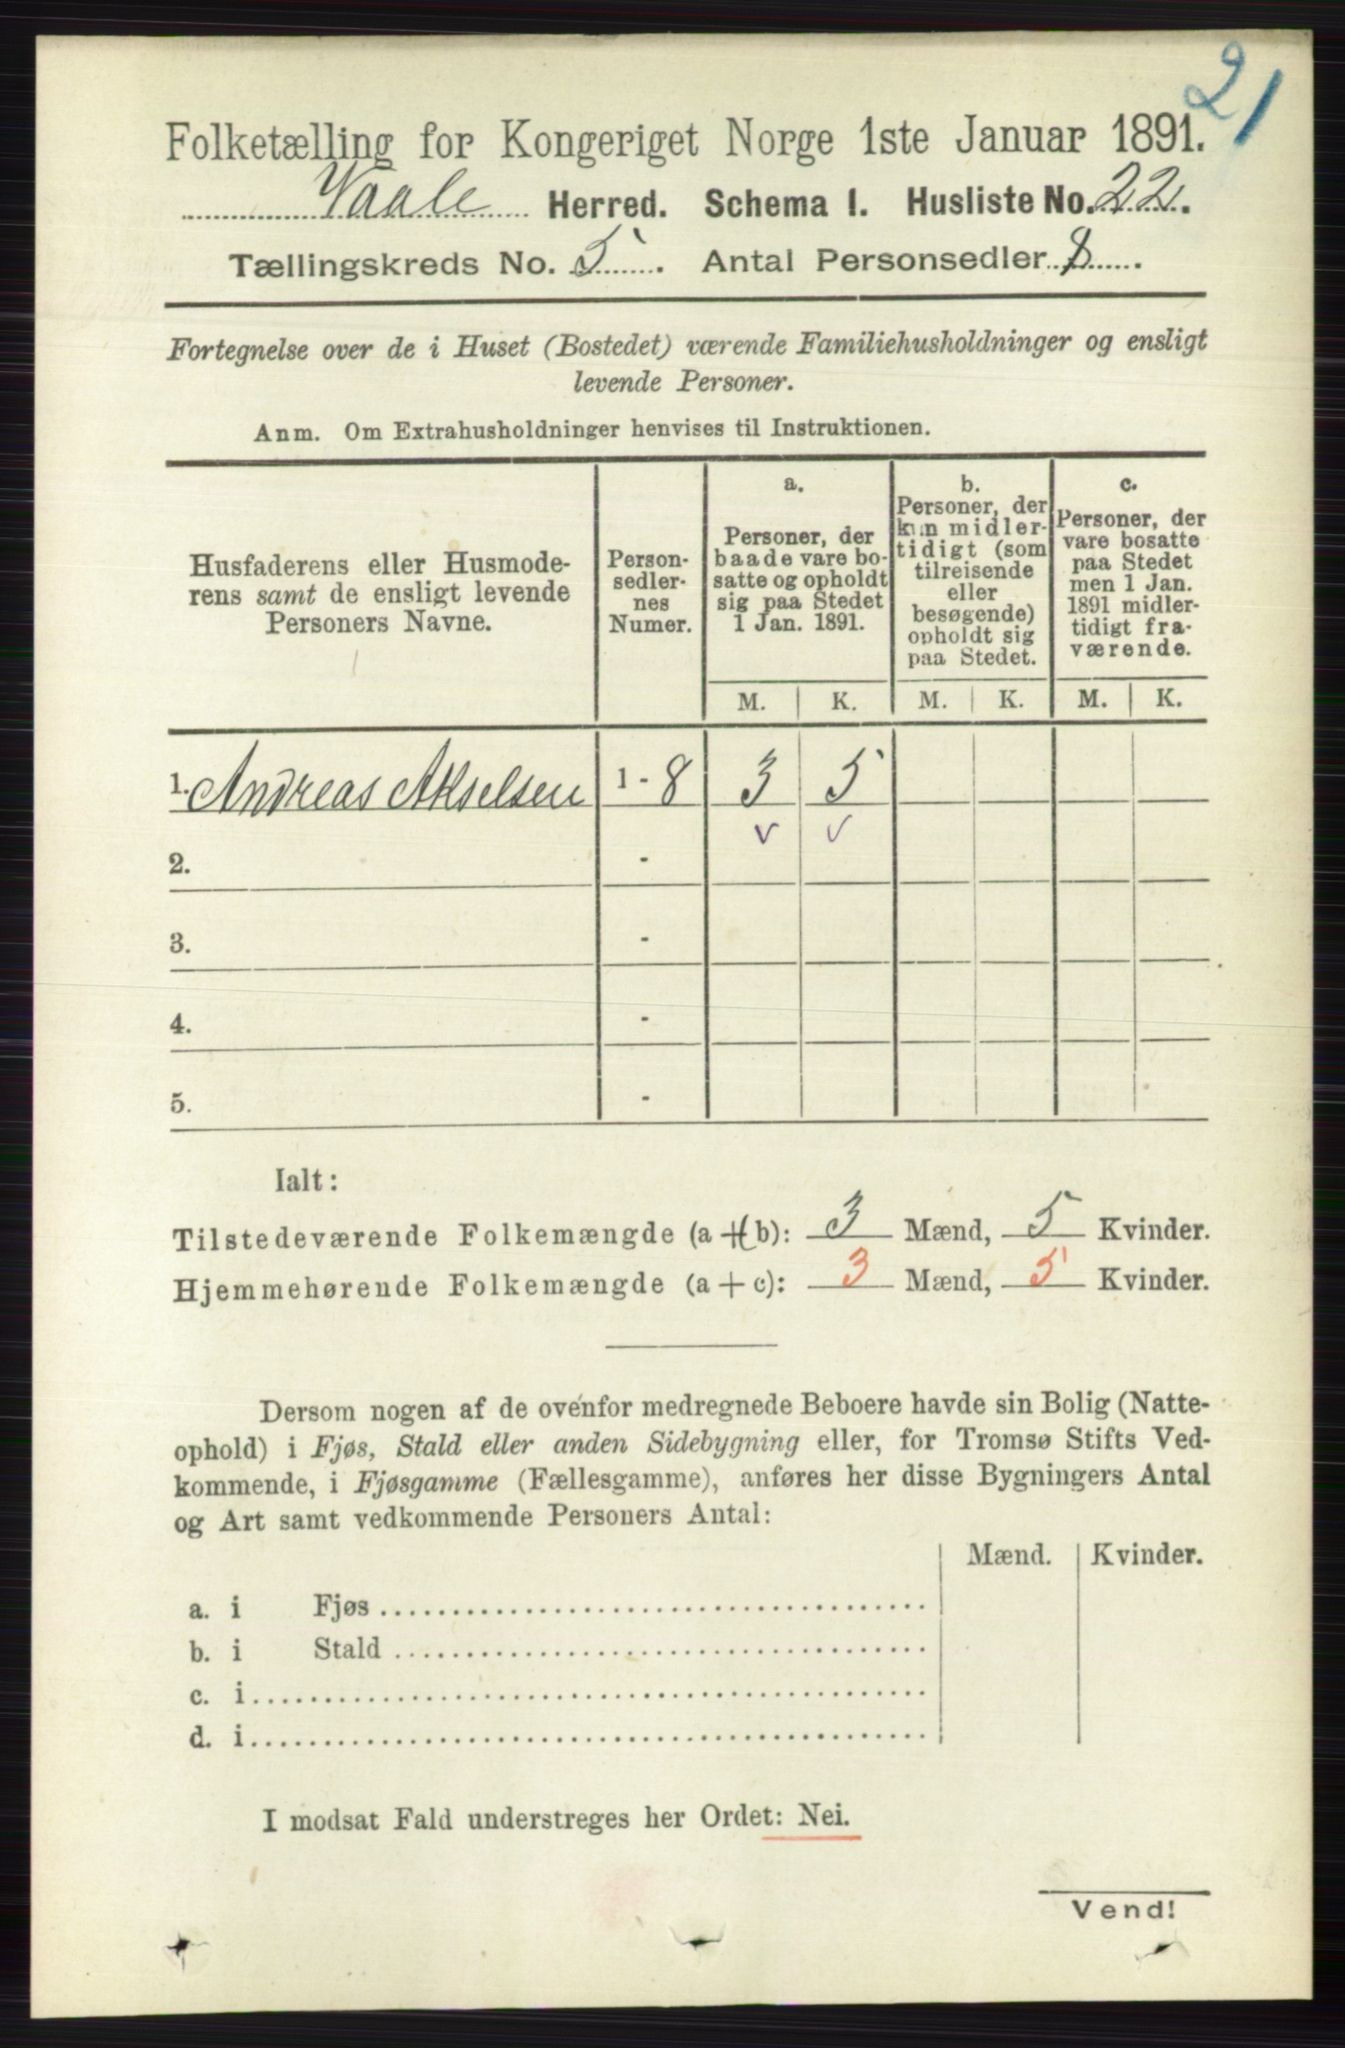 21
Folketælling for Kongeriget Norge 1ste Januar 1891.
Vaale Herred. Schema I. Husliste No. 22.
Tællingskreds No. 5. Antal Personsedler 8.
Fortegnelse over de i Huset (Bostedet) værende Familiehusholdninger og ensligt
levende Personer.
Anm. Om Extrahusholdninger henvises til Instruktionen.
Husfaderens eller Husmode-
rens samt de ensligt levende
Personers Navne.
Person-
sedler-
nes
Numer.
a.
Personer, der
baade vare bo-
satte og opholdt
sig paa Stedet
1 Jan. 1891.
b.
Personer, der
kun midler-
tidigt (som
tilreisende
eller
besøgende)
opholdt sig
paa Stedet.
c.
Personer, der
vare bosatte
paa Stedet
men 1 Jan.
1891 midler-
tidigt fra-
værende.
M. K. M. K. M. K.
1. Andreas Akselsen 1 - 8 3 5
v v
2. -
3. -
4. -
5. -
Ialt:
Tilstedeværende Folkemængde (a + b): 3 Mænd, 5 Kvinder.
Hjemmehørende Folkemængde (a + c): 3 Mænd, 5 Kvinder.
Dersom nogen af de ovenfor medregnede Beboere havde sin Bolig (Natte-
ophold) i Fjøs, Stald eller anden Sidebygning eller, for Tromsø Stifts Ved-
kommende, i Fjøsgamme (Fællesgamme), anføres her disse Bygningers Antal
og Art samt vedkommende Personers Antal:
Mænd. Kvinder.
a. i Fjøs
b. i Stald
c. i
d. i
I modsat Fald understreges her Ordet: Nei.
Vend!